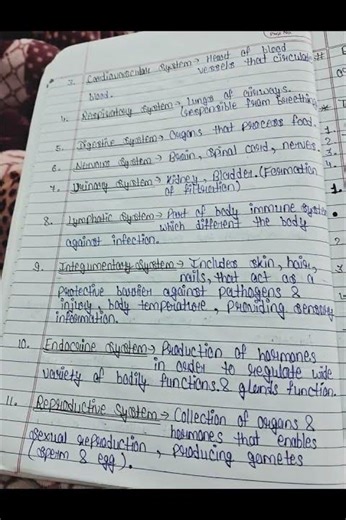 Page No.
3. Cardiovascular System → Heart of blood
vessels that circulate
blood.
4. Respiratory System → Lungs of airways.
(responsible from Breething)
5. Digestive System → Organs that process food.
6. Nervous System → Brain, Spinal Cord, nerves.
7. Urinary System → Kidney, Bladder. (Formation
of filtration)
8. Lymphatic System → Part of body immune System
which different the body
against infection.
9. Integumentary System → Includes skin, hair,
nails, that act as a
protective barrier against pathogens &
injury, body temperature, providing sensory
information.
10. Endocrine System → Production of hormones
in order to regulate wide
variety of bodily functions. & glands function.
11. Reproductive System → Collection of organs &
hormones that enables
sexual reproduction, producing gametes
(sperm & egg).